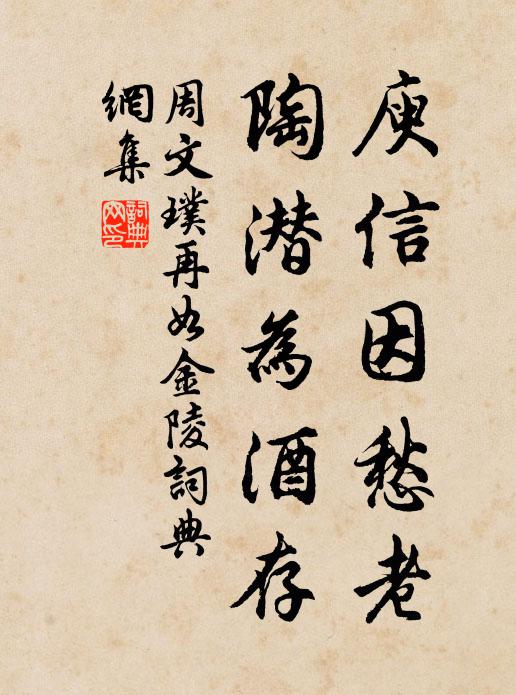 庾信因愁老
陶潜為酒存
周文璞再如金陵詞典
網集
詞典網印